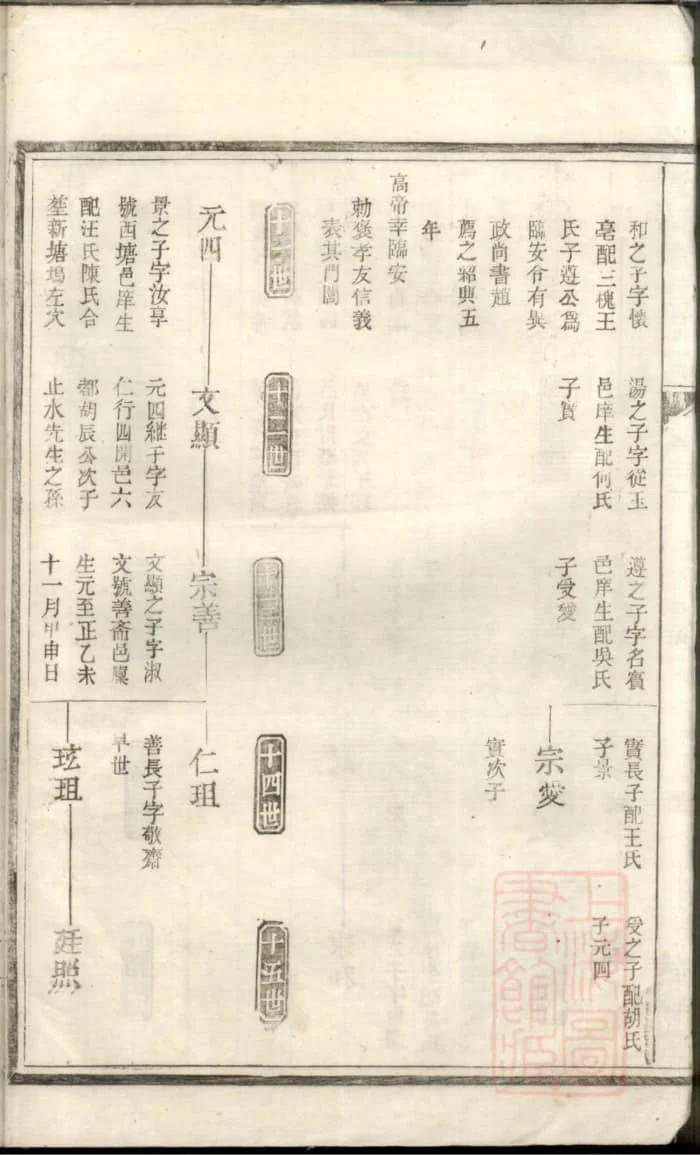 和之子字懷
亳配三槐王
氏子遵公爲
臨安令有異
政尚書趙
薦之紹興五
年
高帝幸臨安
勅褒孝友信義
表其門閭
湯之子字從玉
邑庠生配何氏
子賓
遵之子字名賓
邑庠生配吳氏
子受愛
賓長子配王氏
子景
宗愛
賓次子
受之子配胡氏
子元四
十四世
十五世
元四
景之子字汝享
號西塘邑庠生
配汪氏陳氏合
塟新塘塢左穴
文顯
元四継子字友
仁行四開邑六
都胡辰公次子
止水先生之孫
宗善
文顯之子字淑
文號善斋邑廩
生元至正乙未
十一月甲申日
仁珇
善長子字敬齋
早世
玹珇
廷照
上海圖書館藏